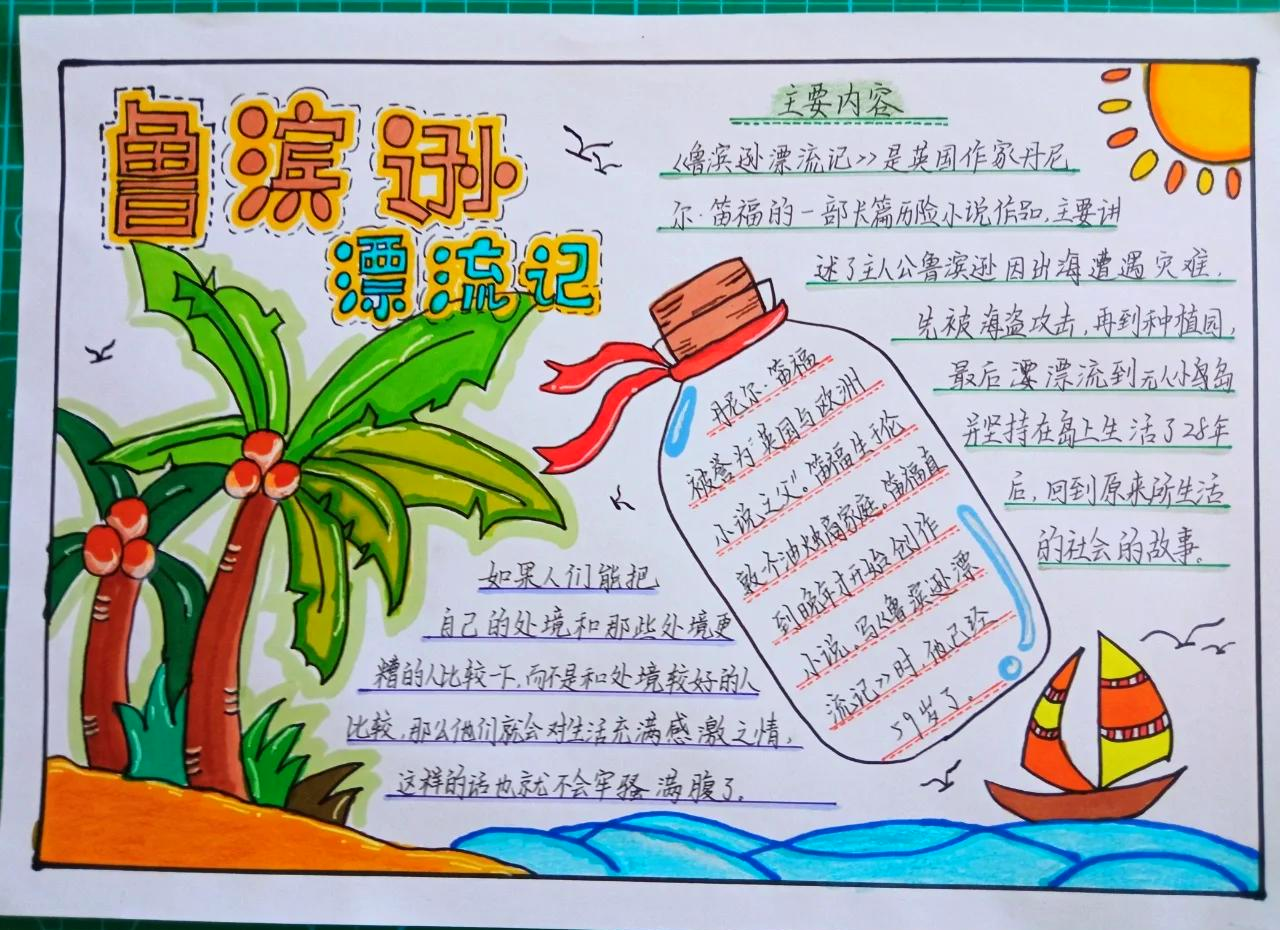 鲁滨逊
漂流记
主要内容
《鲁滨逊漂流记》是英国作家丹尼
尔·笛福的一部长篇历险小说作品,主要讲
述了主人公鲁滨逊因出海遭遇灾难,
先被海盗攻击,再到种植园,
最后漂流到无人小岛
并坚持在岛上生活了28年
后,回到原来所生活
的社会的故事。
丹尼尔·笛福
被誉为"英国与欧洲
小说之父"。笛福生于伦
敦个油烛商家庭。笛福直
到晚年才开始创作
小说。写《鲁滨逊漂
流记》时,他已经
59岁了。
如果人们能把
自己的处境和那些处境更
糟的人比较一下,而不是和处境较好的人
比较,那么他们就会对生活充满感激之情,
这样的话也就不会牢骚满腹了。